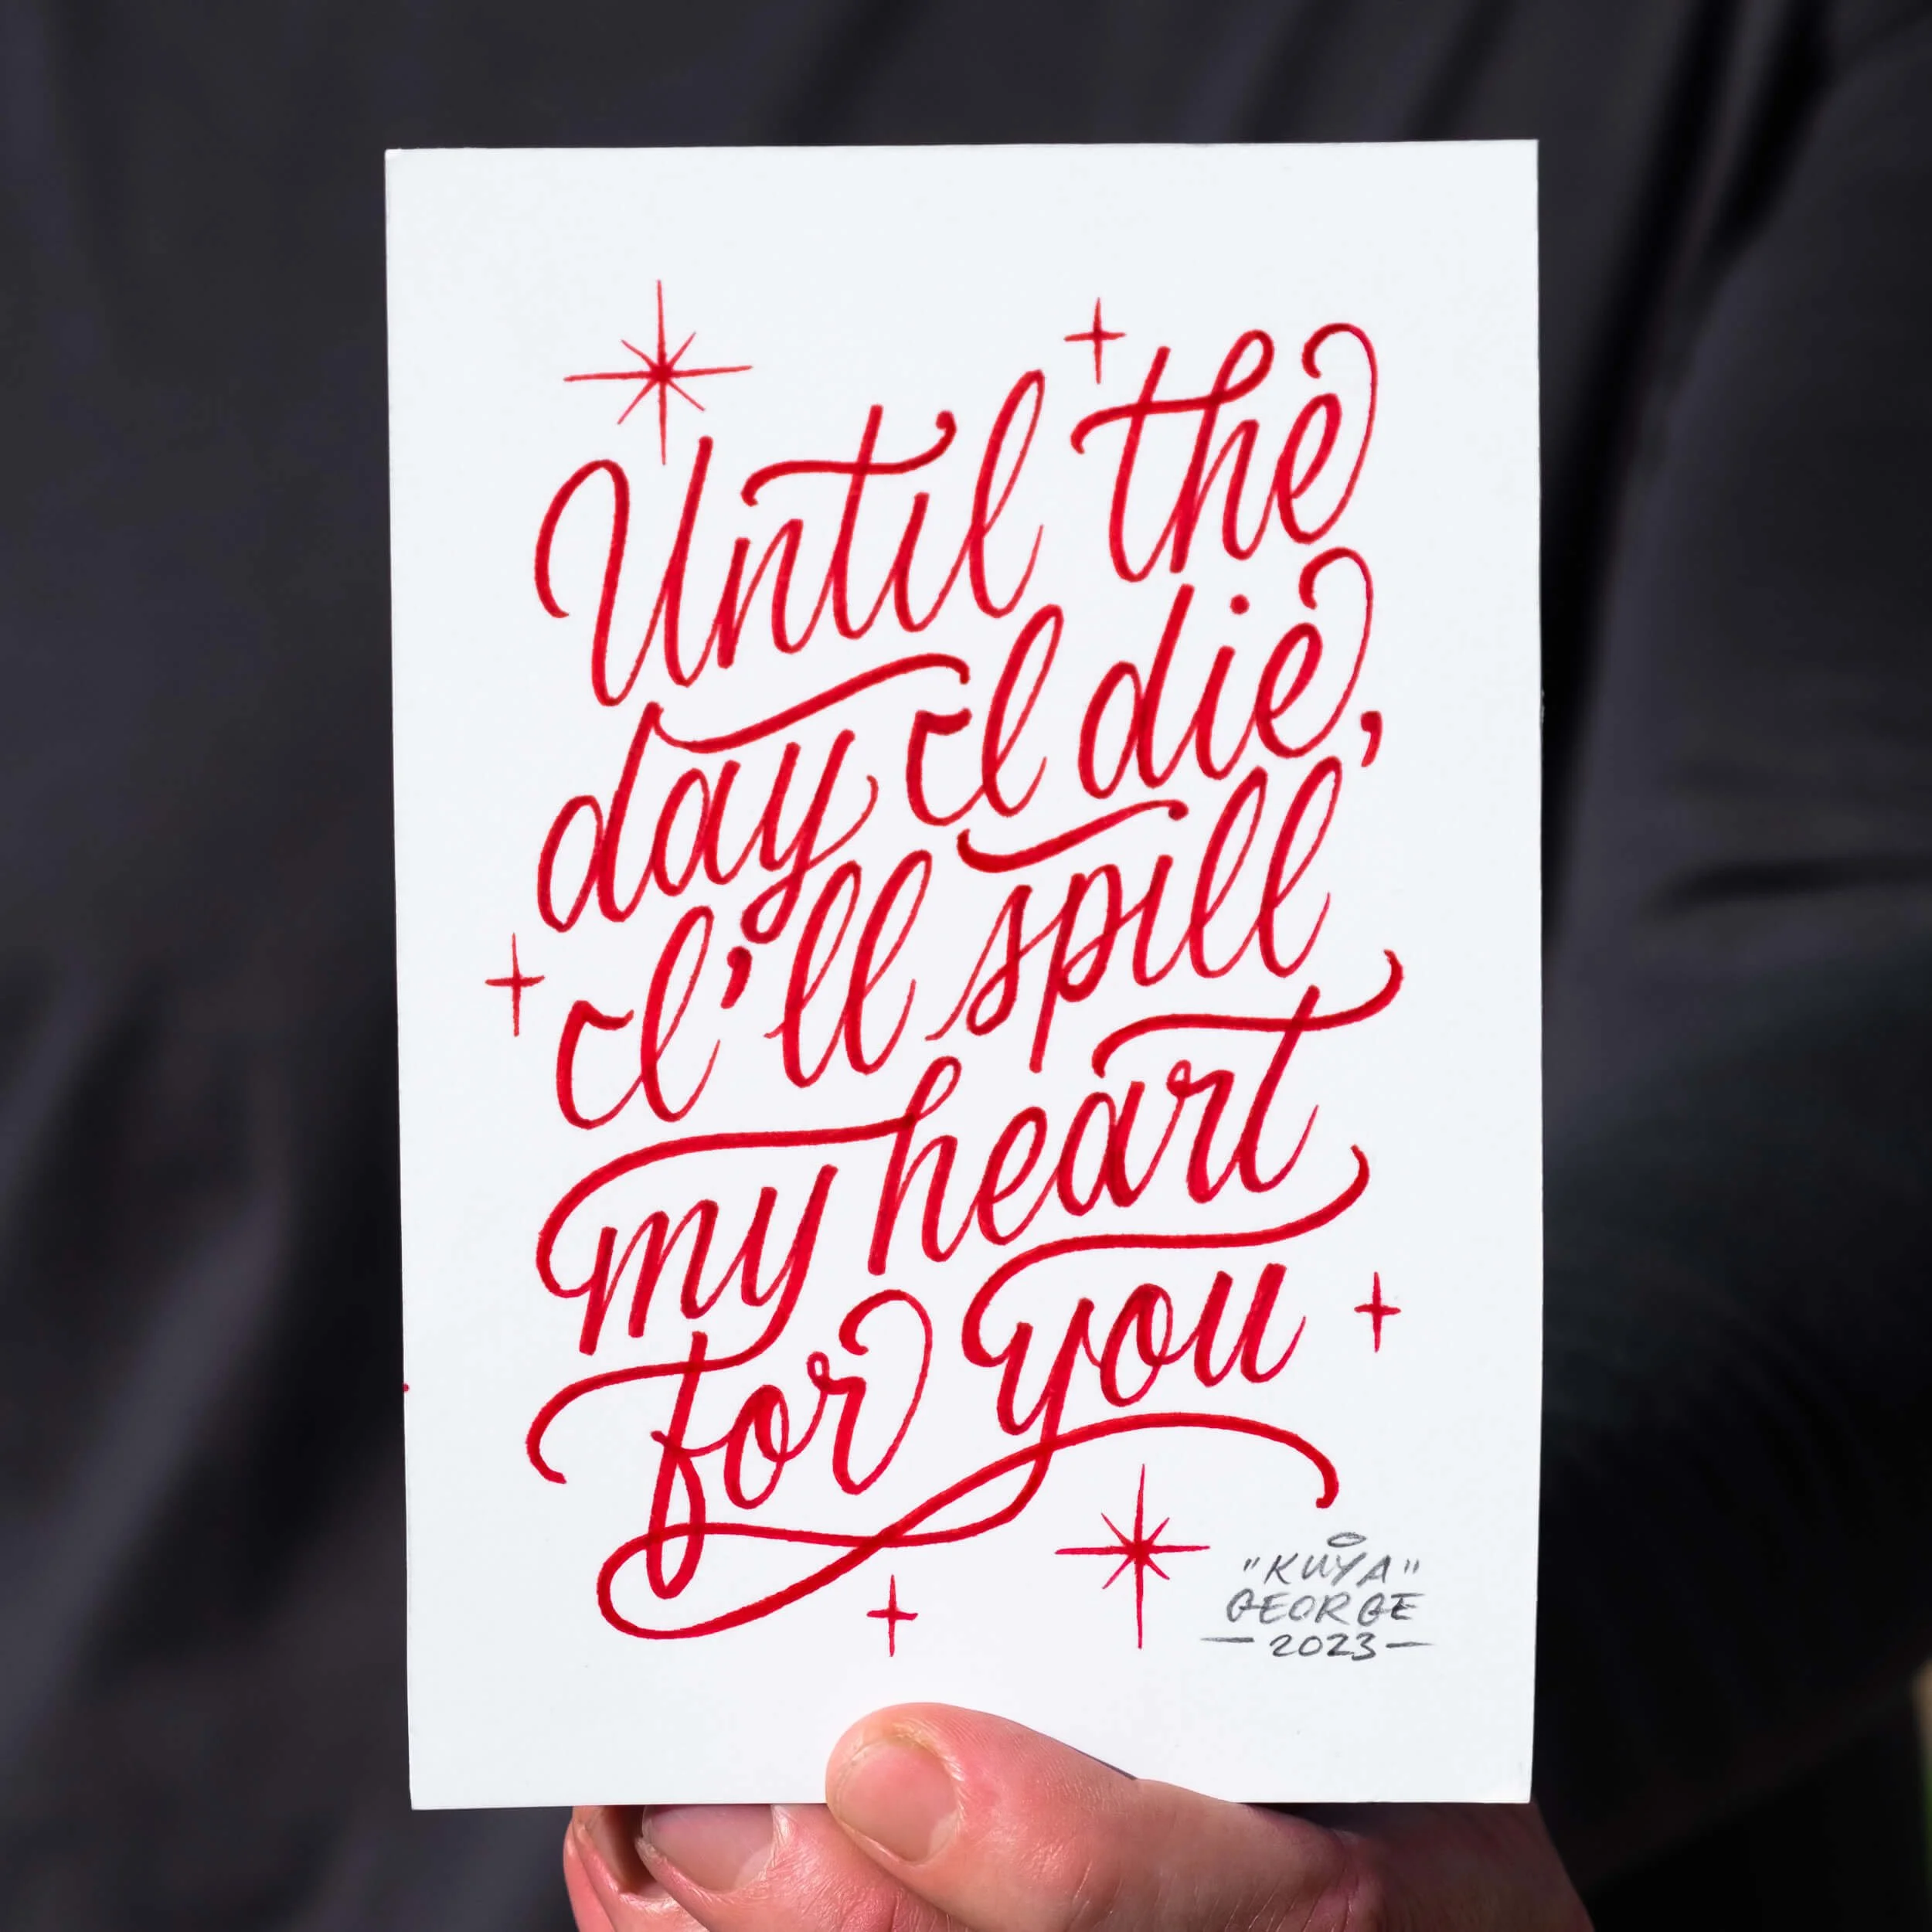 Until the
day I die,
I'll spill
my heart
for you
"KUYA"
GEORGE
—2023—